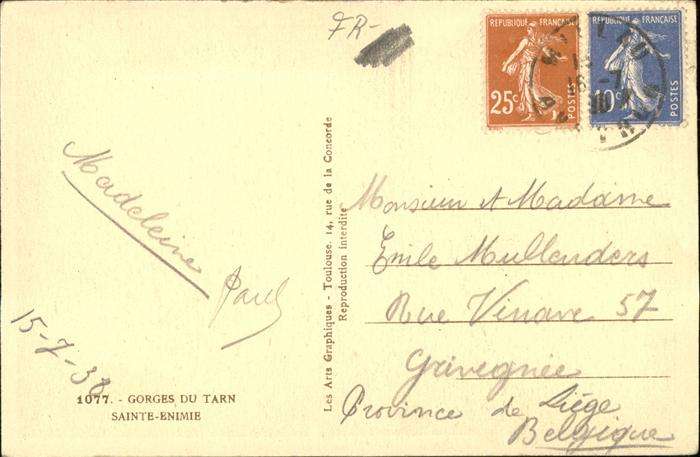 FR-
REPUBLIQUE FRANÇAISE
25c
POSTES
REPUBLIQUE FRANÇAISE
10c
POSTES
Madeleine
Paul
15-7-38
1077. - GORGES DU TARN
SAINTE-ENIMIE
Les Arts Graphiques - Toulouse, 14, rue de la Concorde
Reproduction interdite
Monsieur et Madame
Emile Mullenders
Rue Vinave 57
Grivegnée
Province de Liège
Belgique